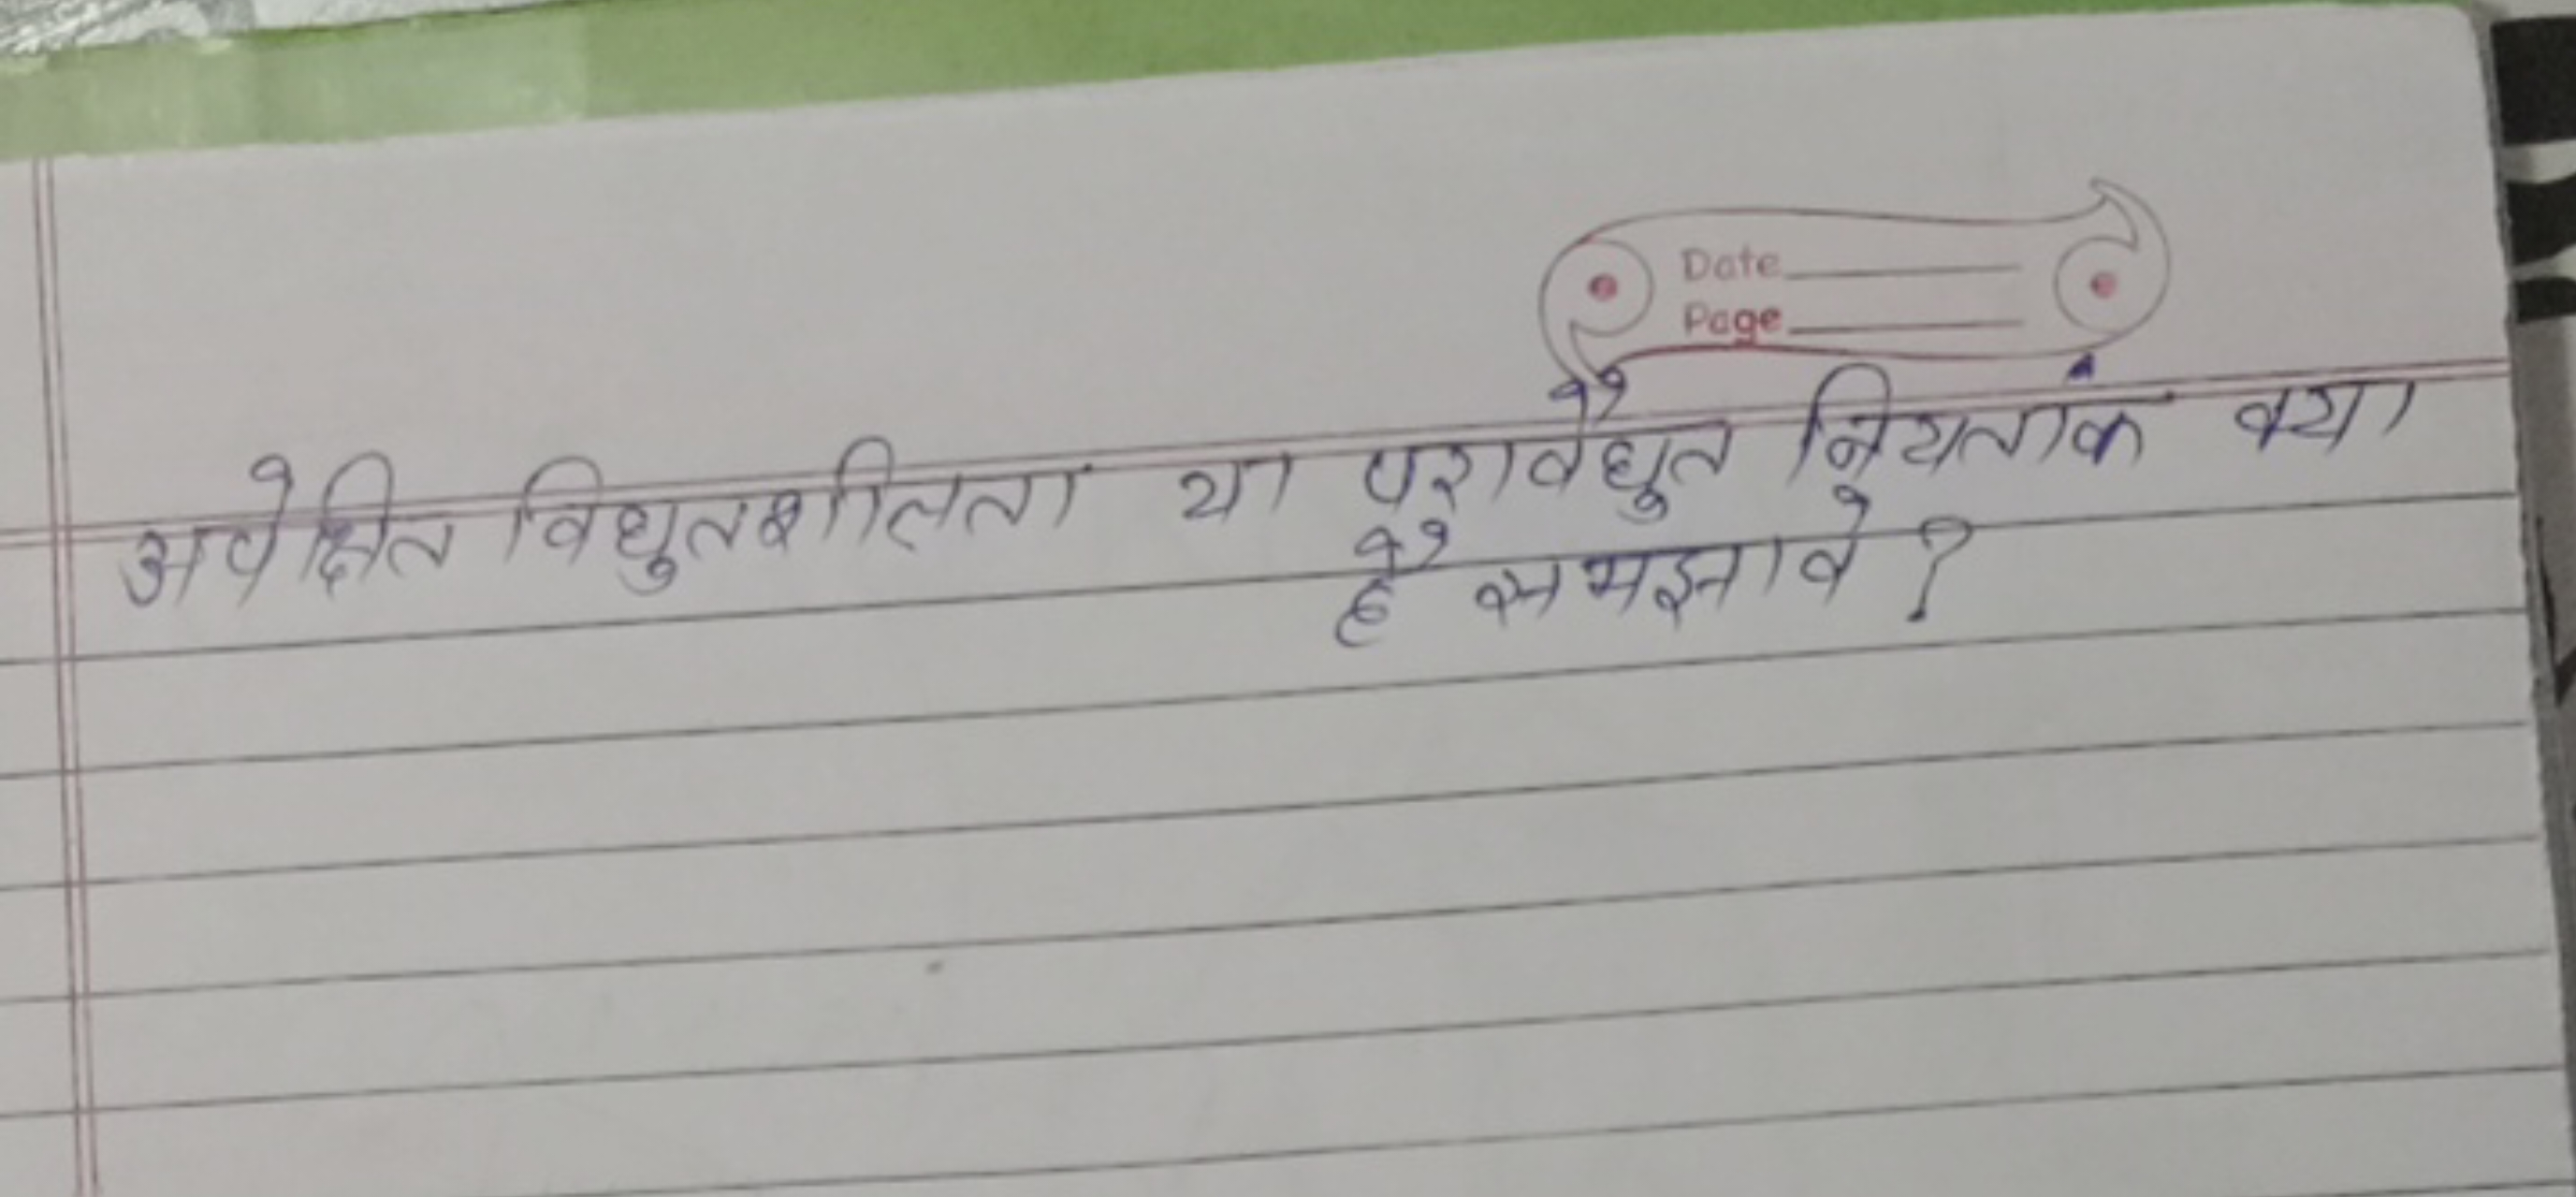 Date
Page
अपेक्षित विधुतशीलता या परावैधुत नियतांक क्या
है समझावे ?